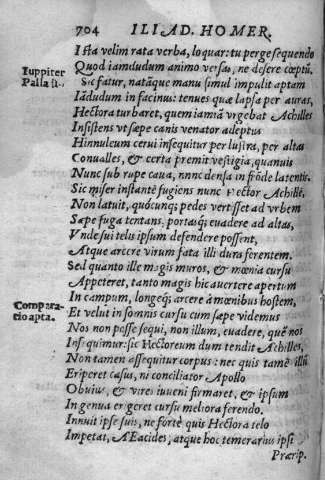 704 ILIAD. HOMER.
Ista velim rata verba, loquar: tu perge sequendo
Iuppiter
Palla si.
Quod iamdudum animo versas, ne desere cœptũ.
Sic fatur, natãque manu simul impulit aptam
Iãdudum in facinus: tenues quæ lapsa per auras,
Hectora turbaret, quem iamiã vrgebat Achilles
Insistens vt sæpe canis venator adeptus
Hinnuleum cerui insequitur per lustra, per altas
Conualles, & certa premit vestigia, quanuis
Nunc sub rupe caua, nunc densa in frõde latentis.
Sic miser instantẽ fugiens nunc Hector Achillẽ,
Non latuit, quócunq; pedes vertisset ad vrbem
Sæpe fuga tentans, portasq; euadere ad altas,
Vnde sui telis ipsum defendere possent,
Atque arcere virum fata illi dura ferentem.
Sed quanto ille magis muros, & mœnia cursu
Appeteret, tanto magis hic auertere apertum
In campum, longeq; arcere à mœnibus hostem,
Compara-
tio apta.
Et velut in somnis cursu cum sæpe videmus
Nos non posse sequi, non illum, euadere, quẽ nos
Insequimur: sic Hectoreum dum tendit Achilles,
Non tamen assequitur corpus: nec quis tamẽ illũ
Eriperet casus, ni conciliator Apollo
Obuius, & vires iuueni firmaret, & ipsum
Ingenua erigeret cursu meliora ferendo.
Innuit ipse suis, ne fortè quis Hectora telo
Impetat, AEacides, atque hoc temerarius ipsi
Præcip.